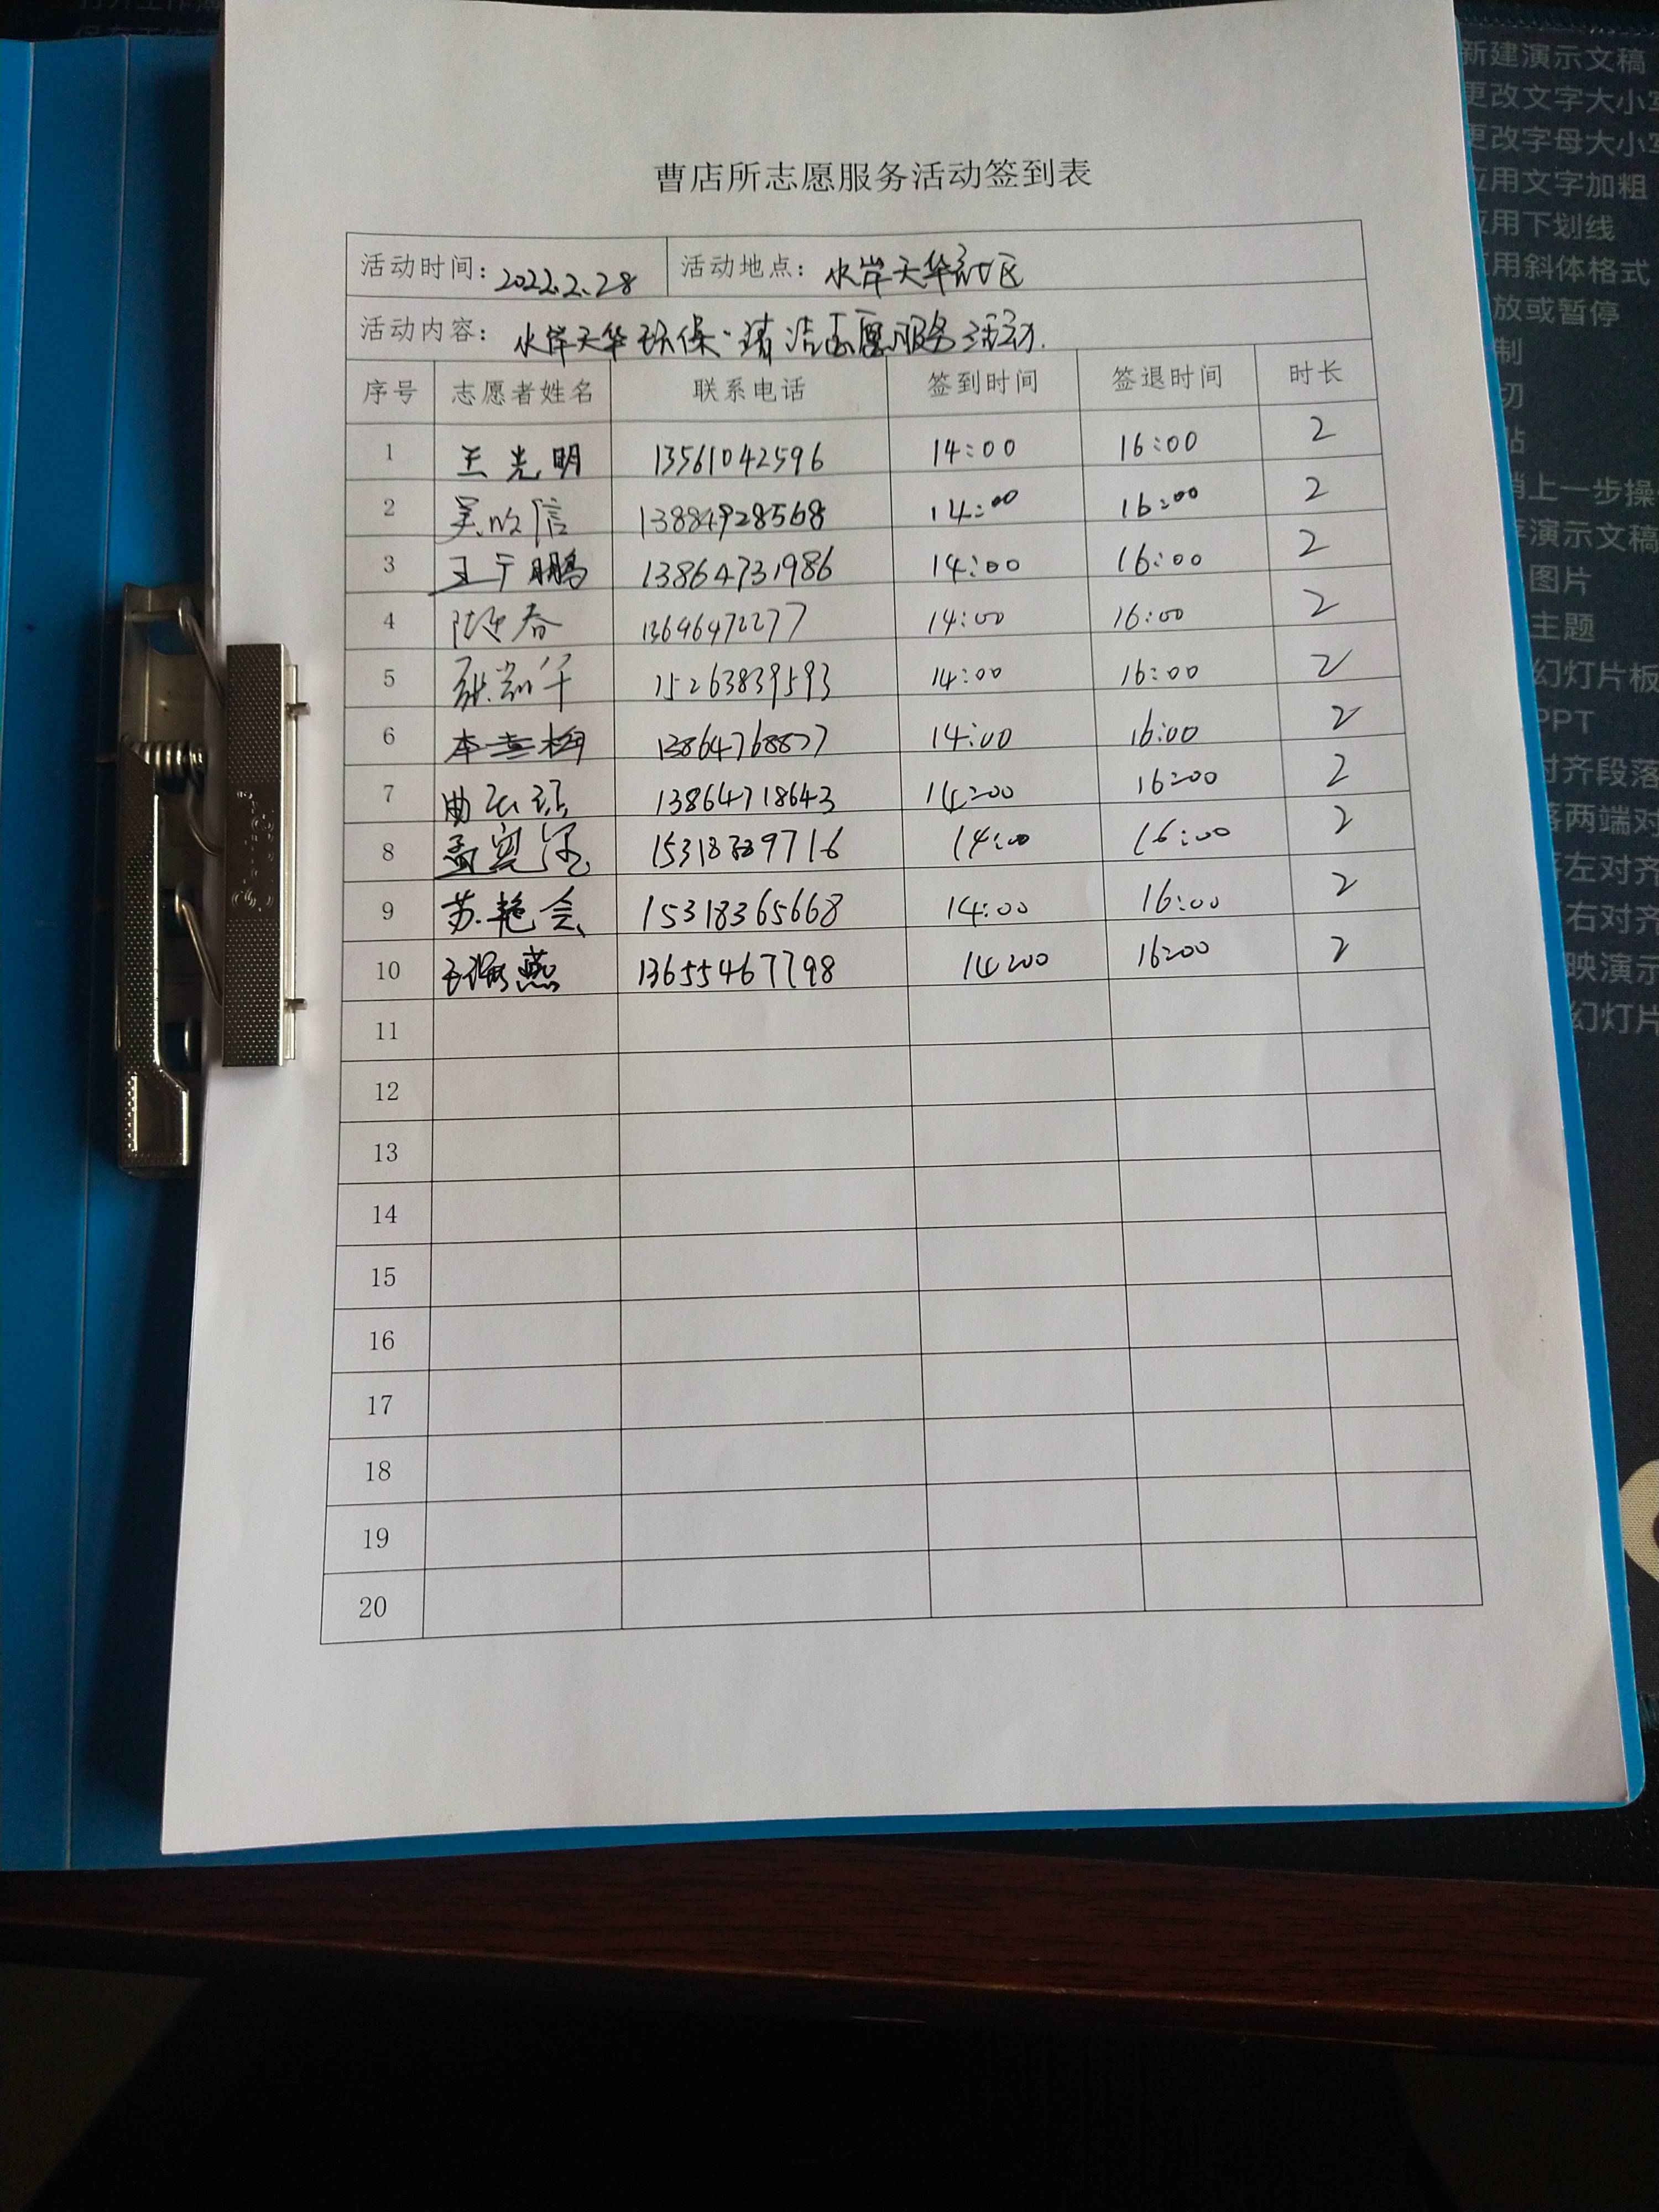 曹店所志愿服务活动签到表
活动时间: 2022.2.28 活动地点: 水岸天华社区
活动内容: 水岸天华环保·清洁志愿服务活动.
序号 志愿者姓名 联系电话 签到时间 签退时间 时长
1 王光明 13561042596 14:00 16:00 2
2 13884928568 14:00 16:00 2
3 王于鹏 13864731986 14:00 16:00 2
4 陈迎春 13696472277 14:00 16:00 2
5 15263839593 14:00 16:00 2
6 13864768827 14:00 16:00 2
7 13864718643 14:00 16:00 2
8 14:00 16:00 2
9 苏艳会 15318365668 14:00 16:00 2
10 王海燕 13655467798 14:00 16:00 2
11
12
13
14
15
16
17
18
19
20
新建演示文稿
更改文字大小写
更改字母大小写
应用文字加粗
应用下划线
应用斜体格式
放或暂停
制
切
贴
消上一步操
演示文稿
图片
主题
幻灯片板
PPT
对齐段落
落两端对
左对齐
右对齐
映演示
幻灯片